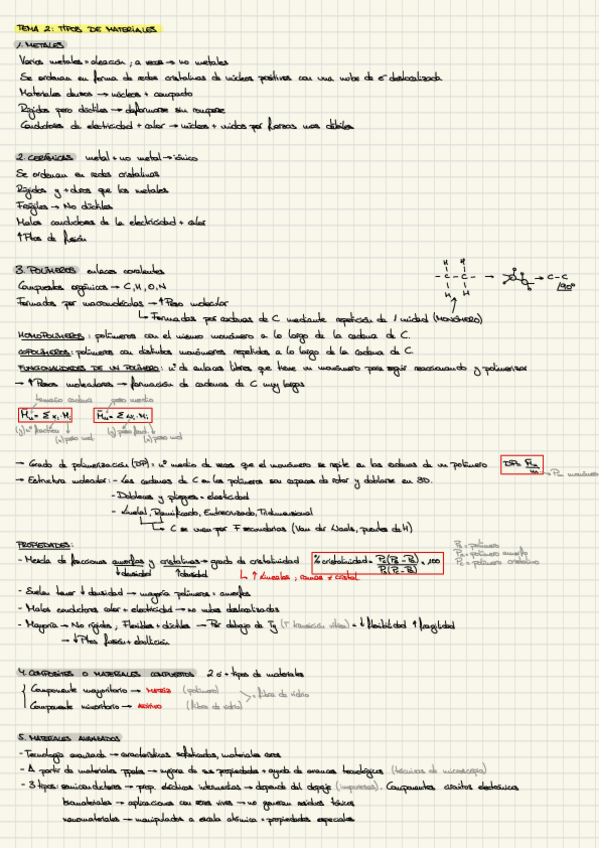 TEMA 2: TIPOS DE MATERIALES
1. METALES
Varios metales = aleación, a veces → no metales
Se ordenan en forma de redes cristalinas de núcleos positivos con una nube de e⁻ deslocalizada
Materiales densos → núcleos + compacto
Rígidos pero dúctiles → deformarse sin romperse
Conductores de electricidad + calor → núcleos + unidos por fuerzas más débiles
2. CERÁMICAS metal + no metal → iónico
Se ordenan en redes cristalinas
Rígidos y + duros que los metales
Frágiles → No dúctiles
Malos conductores de la electricidad + calor
↑ Ptos de fusión
3. POLÍMEROS enlaces covalentes
Compuestos orgánicos → C, H, O, N
Formados por macromoléculas → ↑ Peso molecular
↳ Formadas por cadenas de C mediante repetición de 1 unidad (MONÓMERO)
H H
- C - C - → → C - C
H H 90°
HOMOPOLÍMEROS: polímeros con el mismo monómero a lo largo de la cadena de C.
COPOLÍMEROS: polímeros con distintos monómeros repetidos a lo largo de la cadena de C.
FUNCIONALIDADES DE UN POLÍMERO: nº de enlaces libres que tiene un monómero para seguir reaccionando y polimerizar
→ ↑ Pesos moleculares → formación de cadenas de C muy largas
tamaño cadena peso medio
M̄n = Σ xᵢ · Mᵢ M̄w = Σ wᵢ · Mᵢ
(x) nº fracción (w) peso fracc.
(M) peso mol (M) peso mol
→ Grado de polimerización (DP): nº medio de veces que el monómero se repite en las cadenas de un polímero DP = M̄n / m → Pm monómero
→ Estructura molecular: Las cadenas de C en los polímeros son capaces de rotar y doblarse en 3D.
- Dobleces y pliegues = elasticidad
- Lineal, Ramificado, Entrecruzado, Tridimensional
↳ C se unen por F secundarias (Van der Waals, puentes de H)
PROPIEDADES:
- Mezcla de fracciones amorfas y cristalinas → grado de cristalinidad % cristalinidad = Pc(Ps - Pa) / Ps(Pc - Pa) × 100
↓ densidad ↑ densidad
↳ ↑ Lineales, ramas ≠ cristal
Ps = polímero
Pa = polímero amorfo
Pc = polímero cristalino
- Suelen tener ↓ densidad → mayoría polímeros = amorfos
- Malos conductores calor + electricidad → no nubes deslocalizadas
- Mayoría → No rígidos, Flexibles + dúctiles → Por debajo de Tg (T transición vítrea) = ↓ flexibilidad ↑ fragilidad
→ ↓ Ptos fusión + ebullición
4. COMPOSITES O MATERIALES COMPUESTOS 2 o + tipos de materiales
Componente mayoritario → MATRIZ (polímero)
= fibra de vidrio
Componente minoritario → ADITIVO (fibra de vidrio)
5. MATERIALES AVANZADOS
- Tecnología avanzada → características sofisticadas, materiales caros
- A partir de materiales ppales → mejora de sus propiedades + ayuda de avances tecnológicos (técnicas de microscopía)
- 3 tipos: semiconductores → prop. eléctricas intermedias → depende del dopaje (impurezas). Componentes circuitos electrónicos
biomateriales → aplicaciones con seres vivos → no generan residuos tóxicos
nanomateriales → manipulados a escala atómica = propiedades especiales